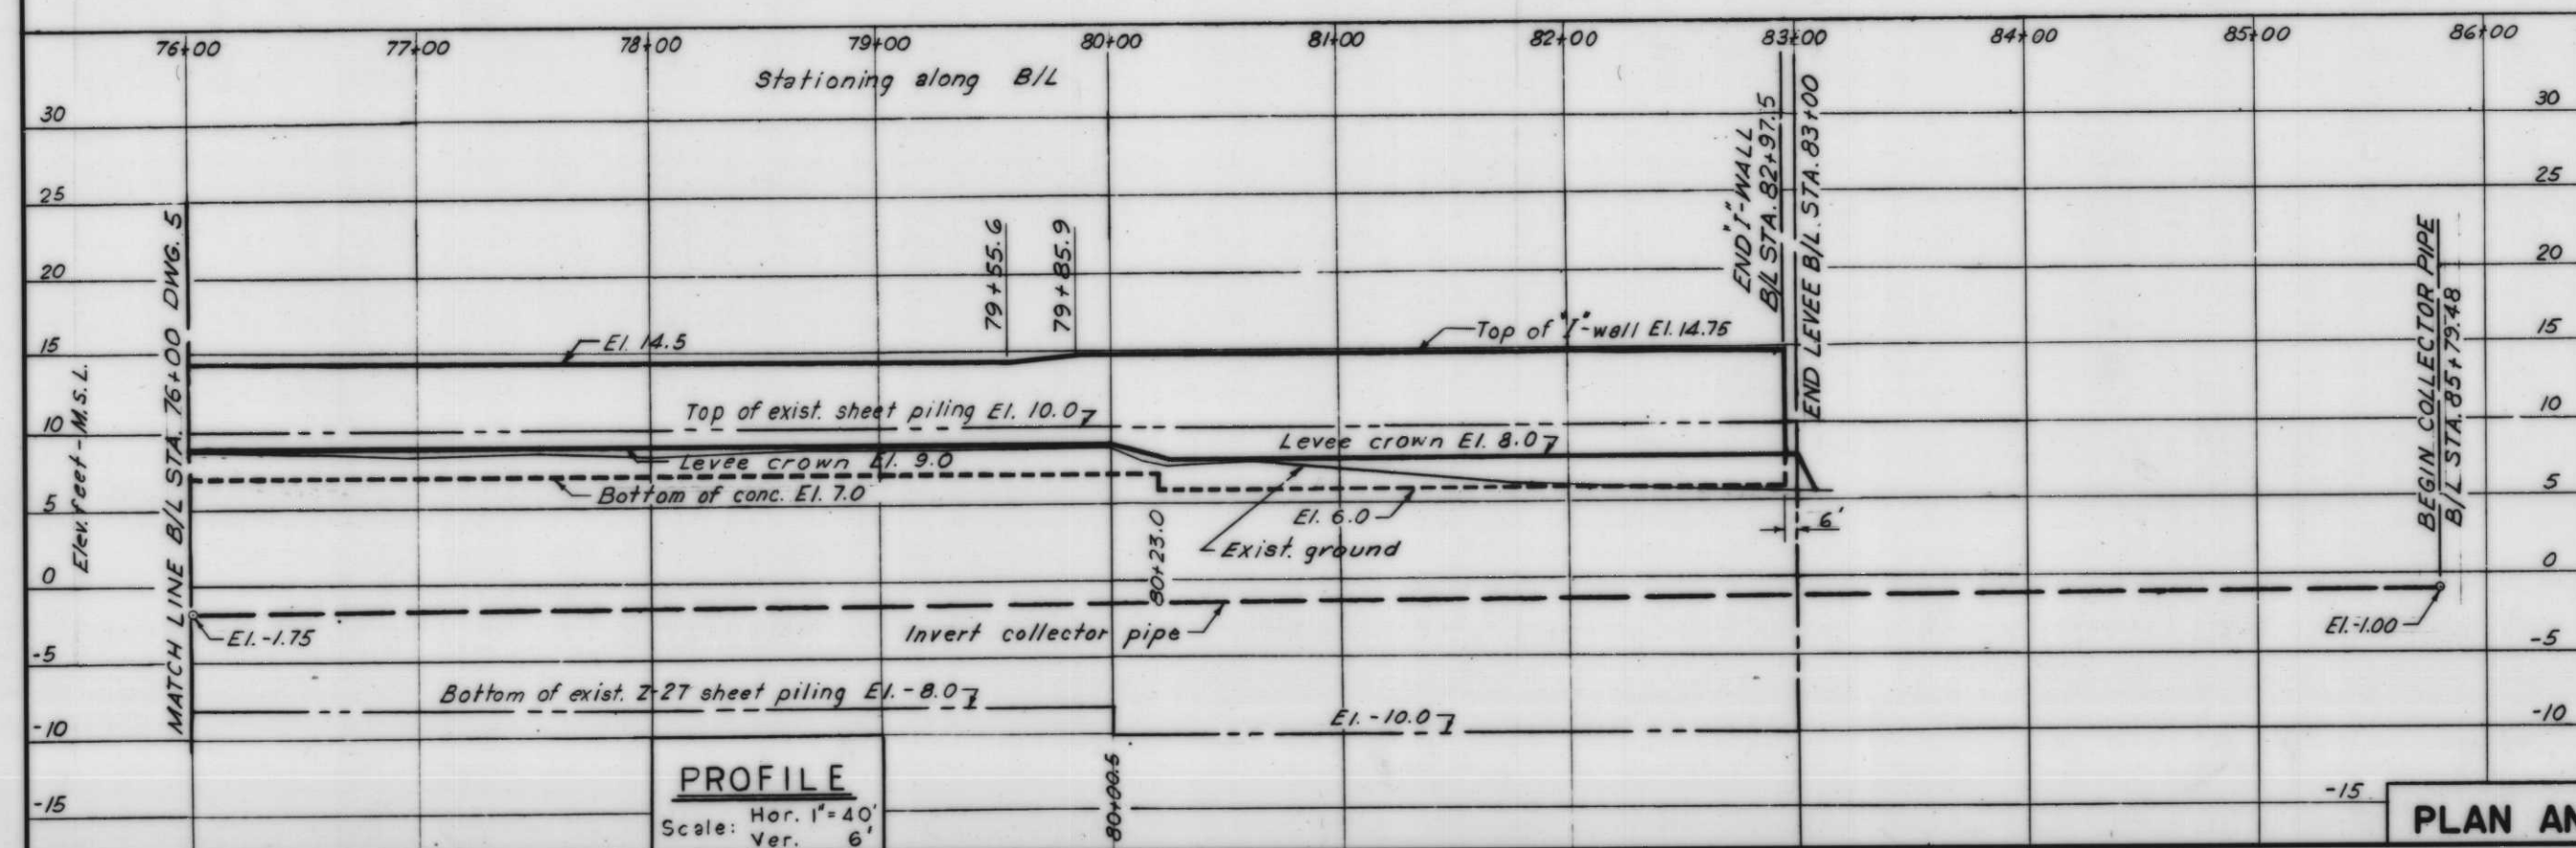 76+00 77+00 78+00 79+00 80+00 81+00 82+00 83+00 84+00 85+00 86+00
Stationing along B/L
30 30
25 25
20 20
15 15
10 10
5 5
0 0
-5 -5
-10 -10
-15 -15
Elev. feet - M.S.L.
MATCH LINE B/L STA. 76+00 DWG. 5
79+55.6
79+85.9
END "I"-WALL
B/L STA. 82+97.5
END LEVEE B/L. STA. 83+00
BEGIN COLLECTOR PIPE
B/L STA. 85+79.48
El. 14.5
Top of "I"-wall El. 14.75
Top of exist. sheet piling El. 10.0
Levee crown El. 8.0
Levee crown El. 9.0
Bottom of conc. El. 7.0
El. 6.0
6'
Exist. ground
80+23.0
El. -1.75
Invert collector pipe
El. -1.00
Bottom of exist. Z-27 sheet piling El. -8.0
El. -10.0
80+00.5
PROFILE
Scale: Hor. 1"=40'
Ver. 6'
PLAN AN